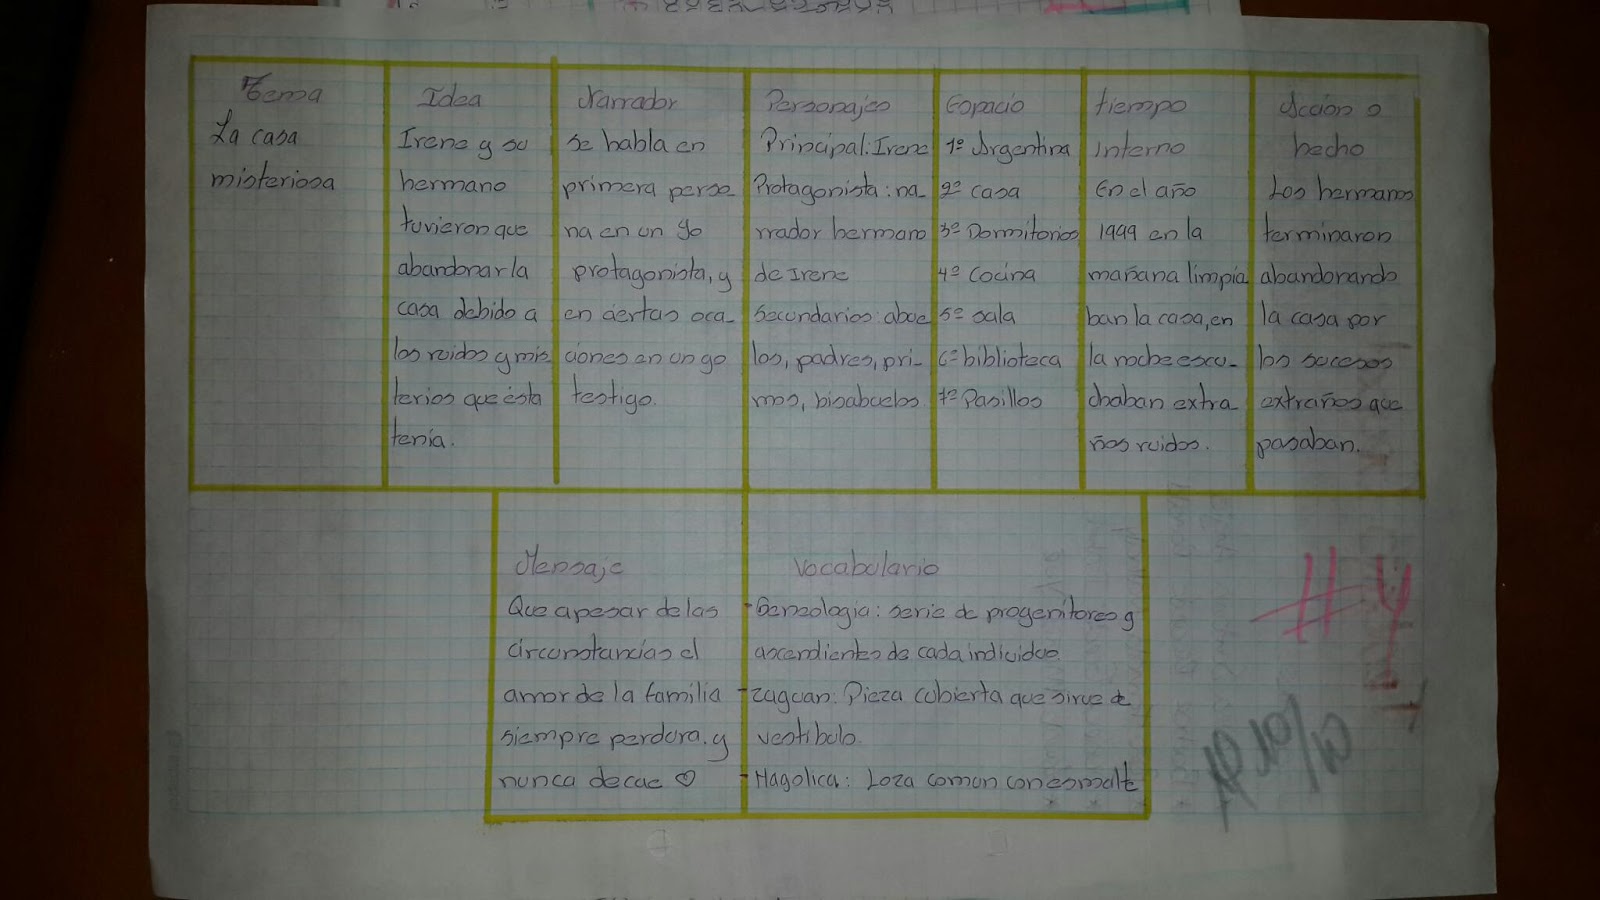 Tema
La casa
misteriosa
Idea
Irene y su
hermano
tuvieron que
abandonar la
casa debido a
los ruidos y mis
terios que ésta
tenía.
Narrador
se habla en
primera perso-
na en un yo
protagonista, y
en ciertas oca-
ciones en un yo
testigo.
Personajes
Principal: Irene
Protagonista: na-
rrador hermano
de Irene
Secundarios: abue
los, padres, pri-
mos, bisabuelos
Espacio
1º Argentina
2º casa
3º Dormitorios
4º Cocina
5º sala
6º biblioteca
7º Pasillos
tiempo
interno
En el año
1999 en la
mañana limpia
ban la casa, en
la noche escu-
chaban extra-
ños ruidos.
Acción o
hecho
Los hermanos
terminaron
abandonando
la casa por
los sucesos
extraños que
pasaban.
Mensaje
Que apesar de las
circunstancias el
amor de la familia
siempre perdura. y
nunca decae
Vocabulario
- Geneologia: serie de progenitores y
ascendientes de cada individuo.
- zaguan: Pieza cubierta que sirve de
vestibulo.
- Magolica: Loza comun con esmalte
#4